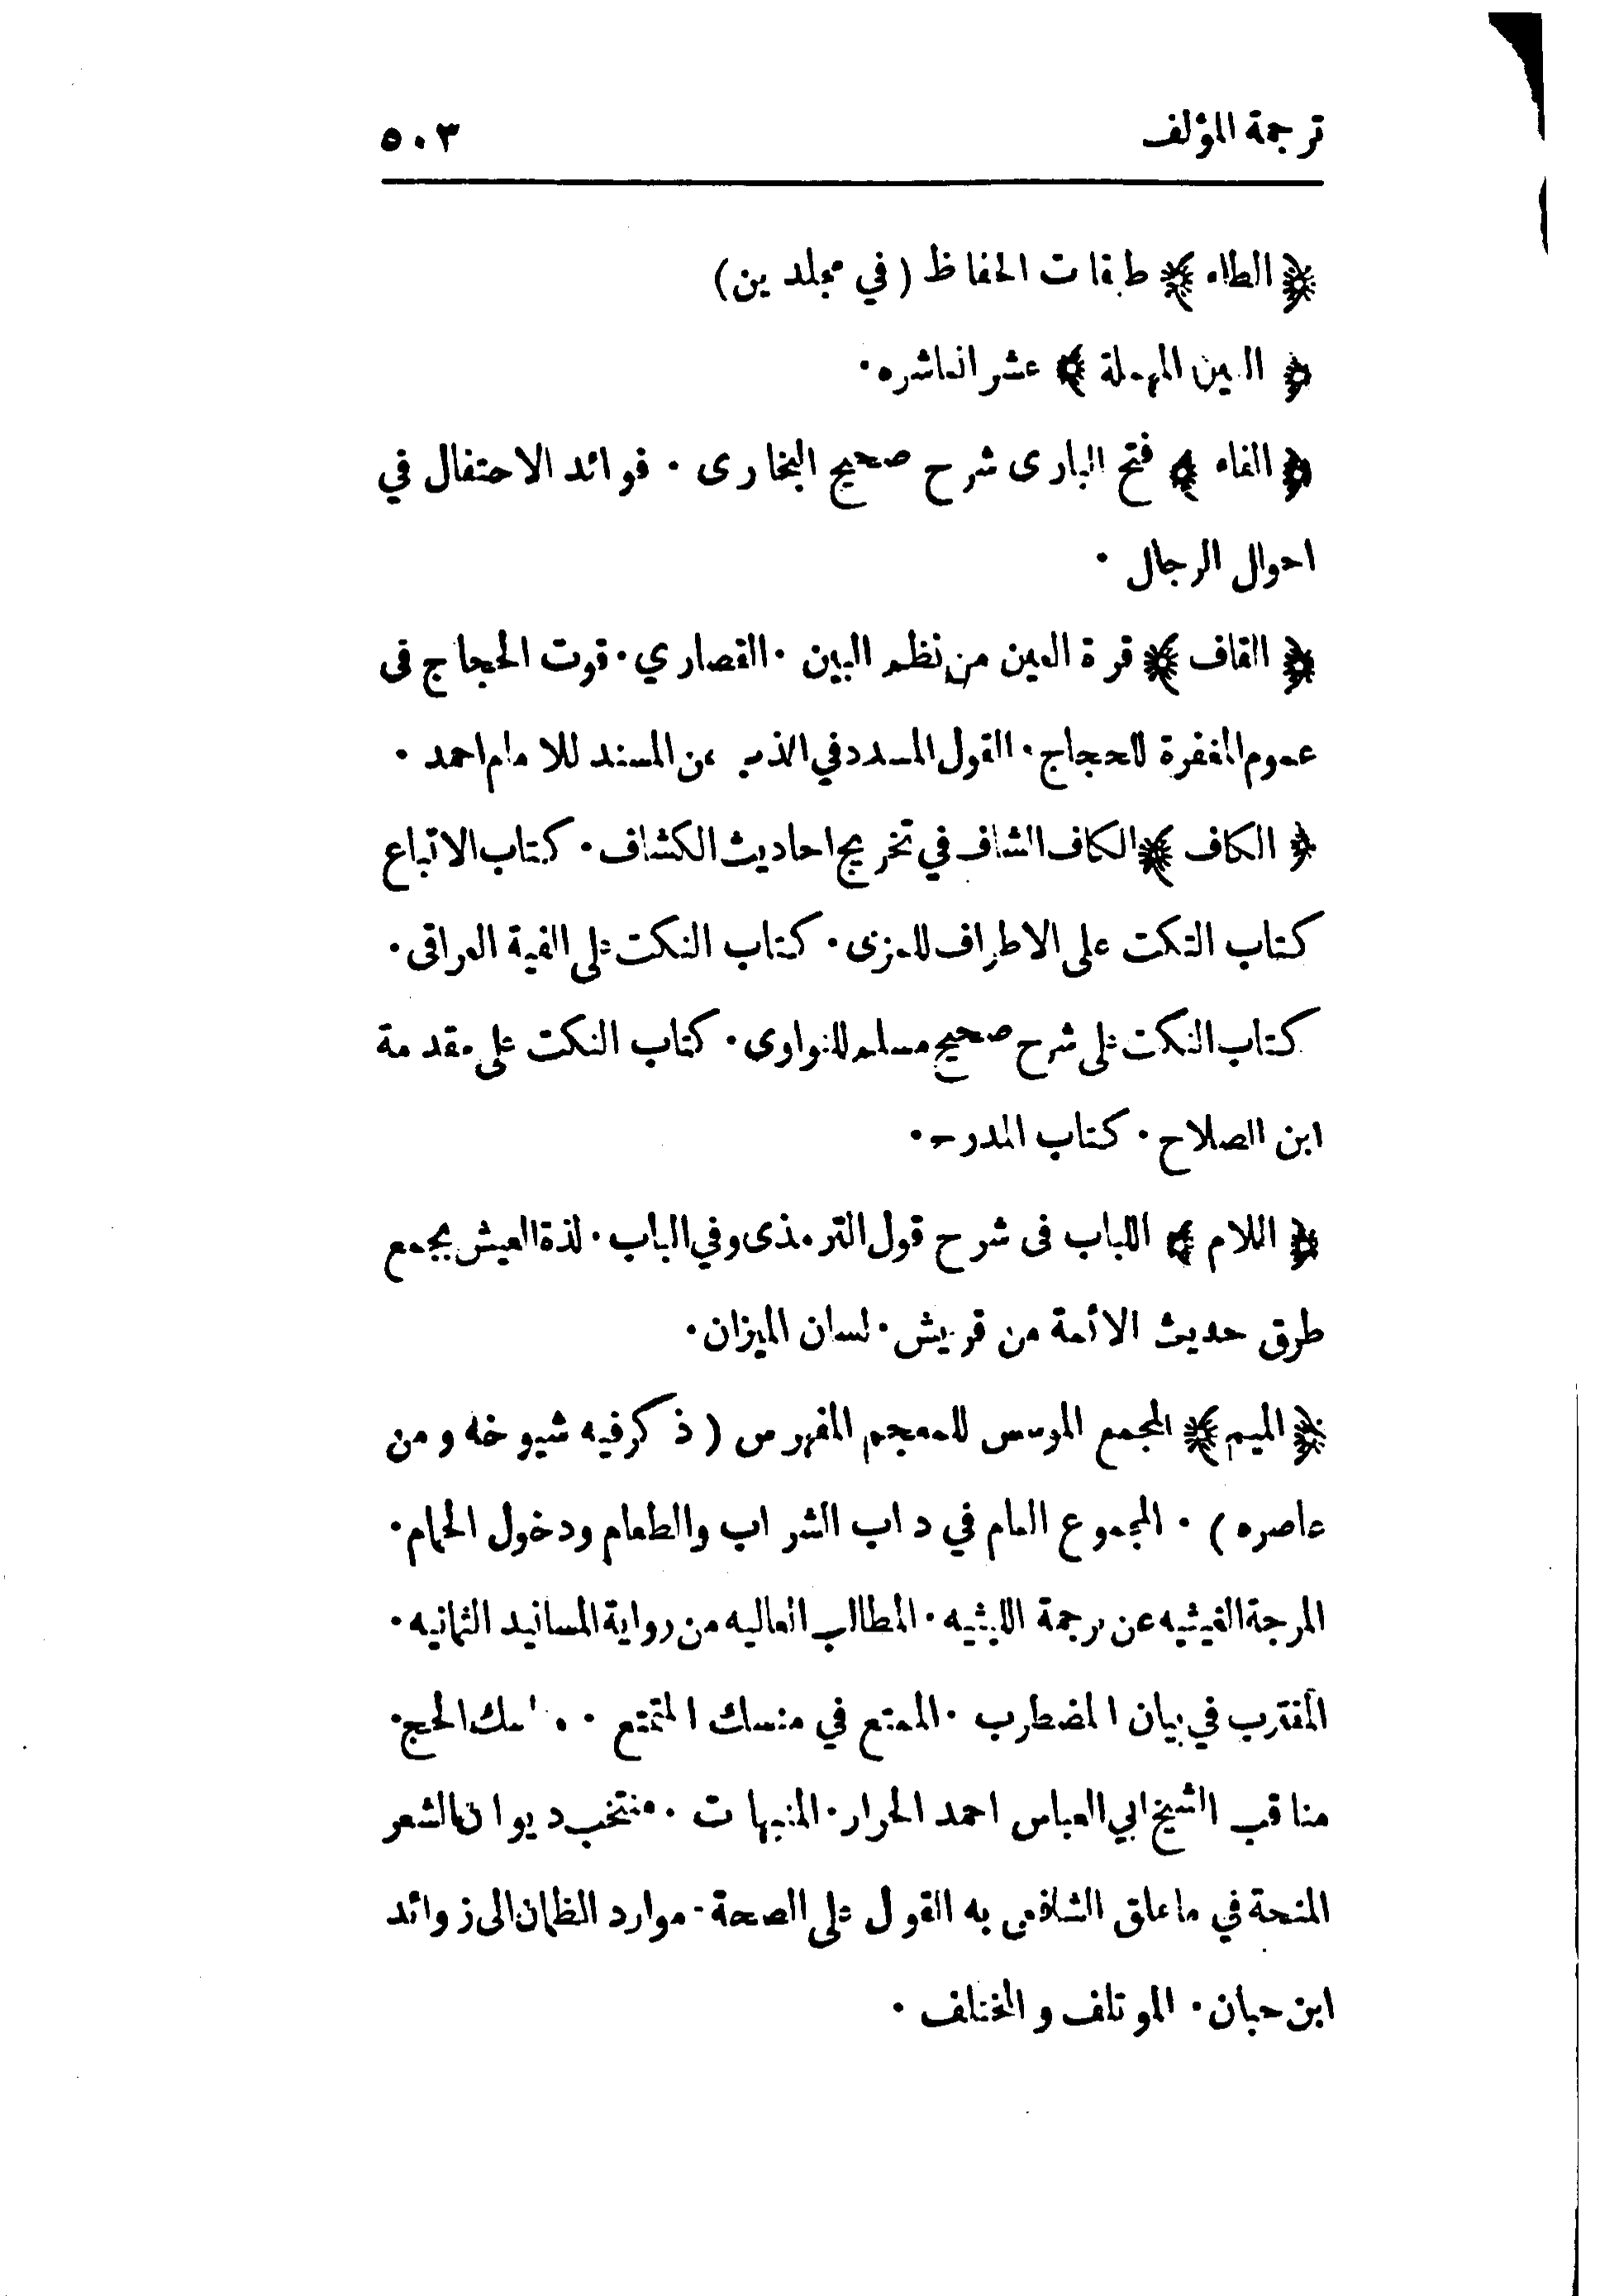 ترجمة المؤلف ٥٠٣
﴿ الطاء ﴾ طبقات الحفاظ (في مجلدين)
﴿ العين المهملة ﴾ عشر العاشره ٠
﴿ الفاء ﴾ فتح البارى شرح صحيح البخارى ٠ فوائد الاحتفال في
احوال الرجال ٠
﴿ القاف ﴾ قرة العين من نظم البين ٠ القصاري ٠ قوت الحجاج فى
عموم المغفرة للحجاج ٠ القول المسدد في الذب عن المسند للامام احمد ٠
﴿ الكاف ﴾ الكاف الشاف في تخريج احاديث الكشاف ٠ كتاب الاتباع
كتاب النكت على الاطراف للمزى ٠ كتاب النكت على الفية العراقى ٠
كتاب النكت على شرح صحيح مسلم للنواوى ٠ كتاب النكت على مقدمة
ابن الصلاح ٠ كتاب المدرج ٠
﴿ اللام ﴾ اللباب فى شرح قول الترمذى وفي الباب ٠ لذة العيش بجمع
طرق حديث الائمة من قريش ٠ لسان الميزان ٠
﴿ الميم ﴾ المجمع الموسس للمعجم المفهرس (ذكر فيه شيوخه ومن
عاصره) ٠ المجموع العام في داب الشراب والطعام ودخول الحمام ٠
المرجة الغيثيه عن رجمة الليثيه ٠ المطالب العاليه من رواية المسانيد الثمانيه ٠
المقترب في بيان المضطرب ٠ الممتع في منسك المتمتع ٠ مناسك الحج ٠
مناقب الشيخ ابي العباس احمد الحرار ٠ المنبهات ٠ منتخب ديوان الشعر
المنحة في ما علق الشافعى به القول على الصحة - موارد الظمان الى زوائد
ابن حبان ٠ الموتلف والمختلف ٠